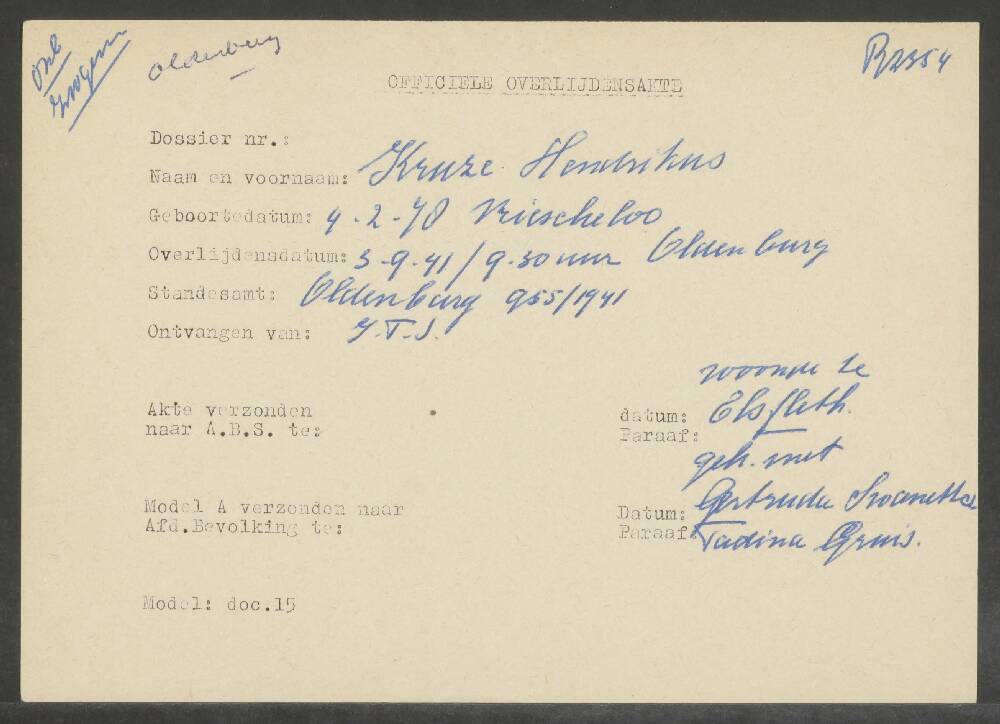 Oldenburg
B2354
OFFICIELE OVERLIJDENSAKTE
Dossier nr.:
Naam en voornaam: Kruze Hendrikus
Geboortedatum: 4-2-78 Vriescheloo
Overlijdensdatum: 3-9-41/9.30 uur Oldenburg
Standesamt: Oldenburg 955/1941
Ontvangen van: I.T.S.
woonde te
Akte verzonden datum: Elsfleth.
naar A.B.S. te: Paraaf:
geh. met
Model A verzonden naar Datum: Gertruda
Afd.Bevolking te: Paraaf:
Model: doc.15